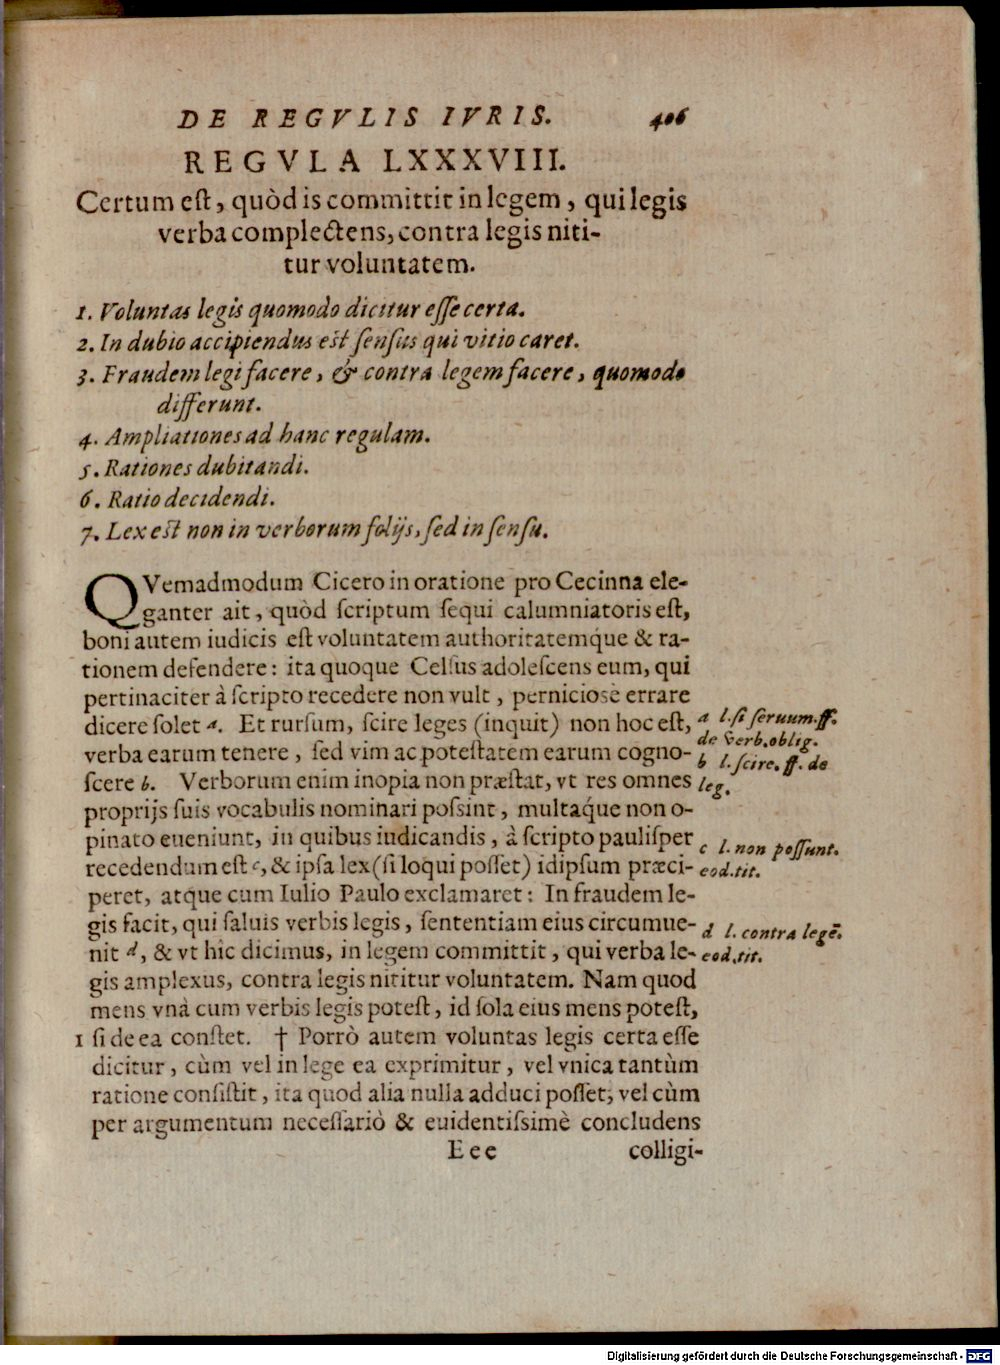 DE REGVLIS IVRIS. 406
REGVLA LXXXVIII.
Certum eſt, quòd is committit in legem, qui legis
verba complectens, contra legis niti-
tur voluntatem.
1. Voluntas legis quomodo dicitur eſſe certa.
2. In dubio accipiendus eſt ſenſus qui vitio caret.
3. Fraudem legi facere, & contra legem facere, quomodo
differunt.
4. Ampliationes ad hanc regulam.
5. Rationes dubitandi.
6. Ratio decidendi.
7. Lex eſt non in verborum folijs, ſed in ſenſu.
QVemadmodum Cicero in oratione pro Cecinna ele-
ganter ait, quòd ſcriptum ſequi calumniatoris eſt,
boni autem iudicis eſt voluntatem authoritatemque & ra-
tionem defendere: ita quoque Celſus adoleſcens eum, qui
pertinaciter à ſcripto recedere non vult, perniciosè errare
dicere ſolet a. Et rurſum, ſcire leges (inquit) non hoc eſt,
verba earum tenere, ſed vim ac poteſtatem earum cogno-
ſcere b. Verborum enim inopia non præſtat, vt res omnes
proprijs ſuis vocabulis nominari poſsint, multaq́ue non o-
pinato eueniunt, in quibus iudicandis, à ſcripto pauliſper
recedendum eſt c, & ipſa lex (ſi loqui poſſet) idipſum præci-
peret, atque cum Iulio Paulo exclamaret: In fraudem le-
gis facit, qui ſaluis verbis legis, ſententiam eius circumue-
nit d, & vt hic dicimus, in legem committit, qui verba le-
gis amplexus, contra legis nititur voluntatem. Nam quod
mens vnà cum verbis legis poteſt, id ſola eius mens poteſt,
1 ſi de ea conſtet. † Porrò autem voluntas legis certa eſſe
dicitur, cùm vel in lege ea exprimitur, vel vnica tantùm
ratione conſiſtit, ita quod alia nulla adduci poſſet; vel cùm
per argumentum neceſſariò & euidentiſsimè concludens
Eee colligi-
a l. ſi ſeruum. ff.
de verb. oblig.
b l. ſcire. ff. de
leg.
c l. non poſſunt.
eod. tit.
d l. contra legē.
eod. tit.
Digitalisierung gefördert durch die Deutsche Forschungsgemeinschaft - DFG